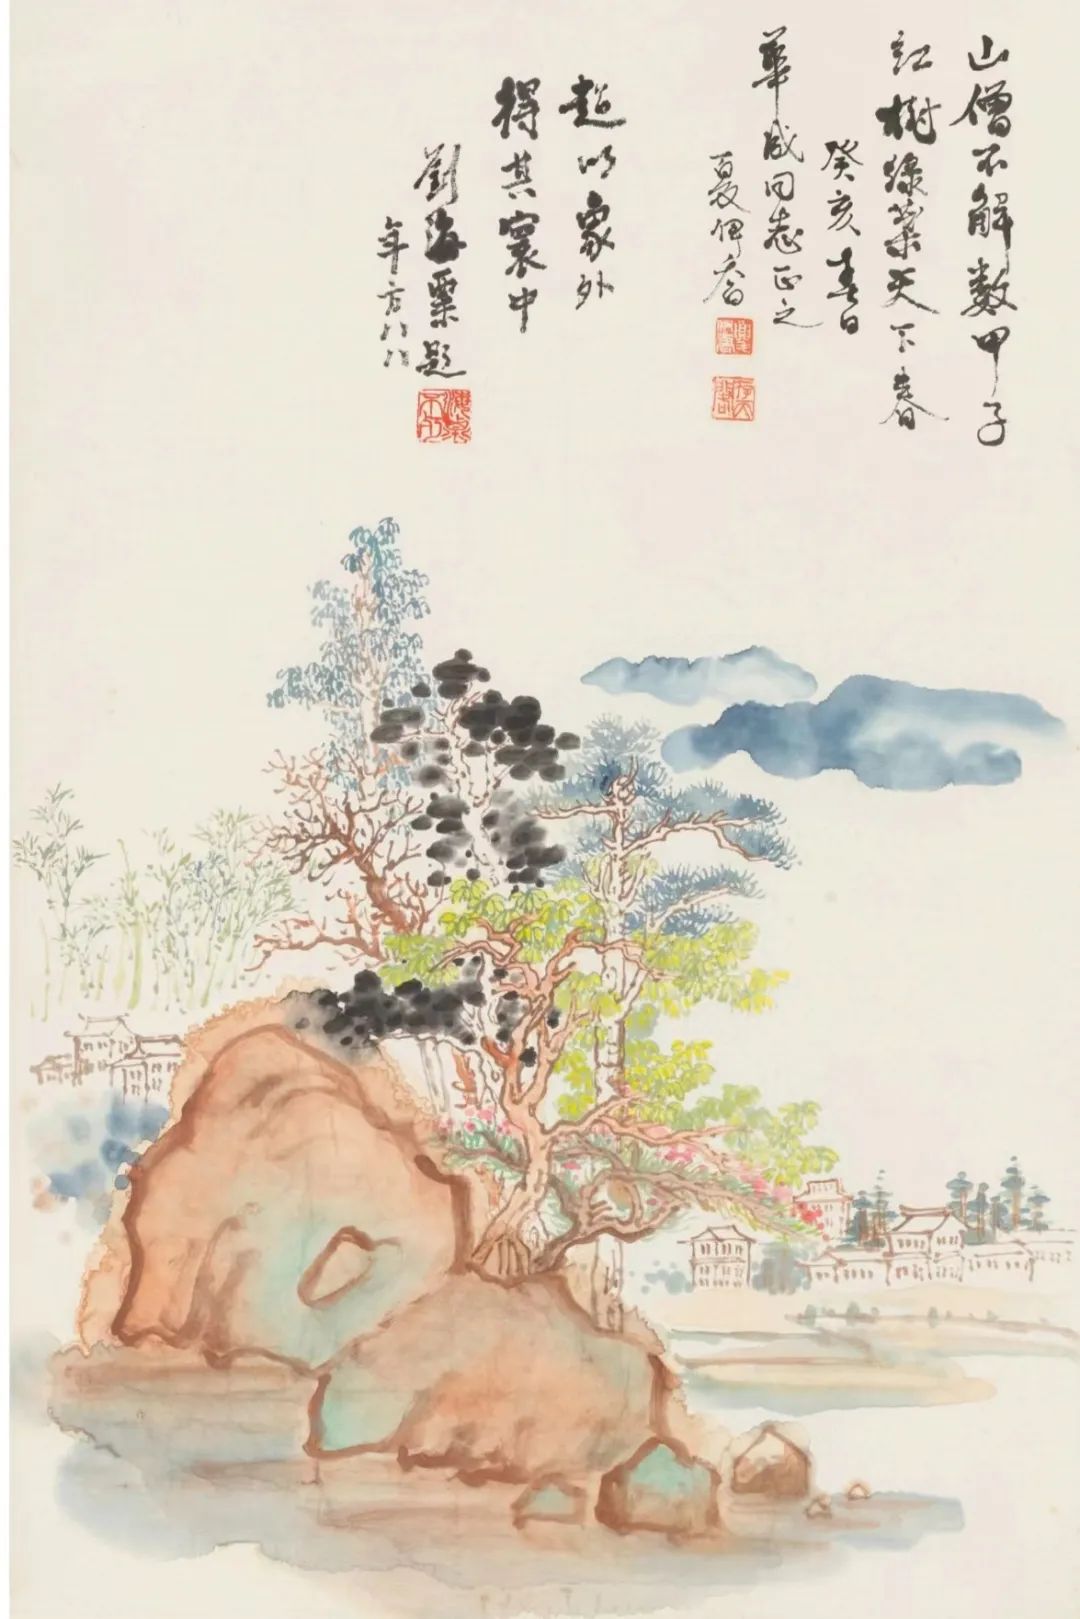 山僧不解数甲子
紅樹綠葉天下春
癸亥春日
華成同志正之
夏伊喬
超以象外
得其寰中
劉海粟題
年方八八